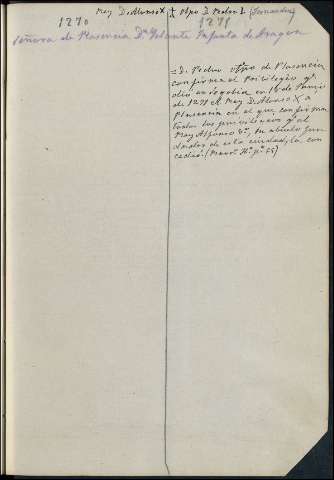 Rey D. Alonso X Obpo D. Pedro 2 (Fernandez)
1270 1271
Señora de Plasencia Dª Yolante Infanta de Aragon
= D. Pedro Obpo de Plasencia
confirma el Privilegio qe
dió en Segobia en 16 de
de 1271 el Rey D. Alonso X a
Plasencia en el que confirma
todos los privilexios qe el
Rey Alfonso 8º, su abuelo fun-
dador de esta ciudad, la con-
cedió